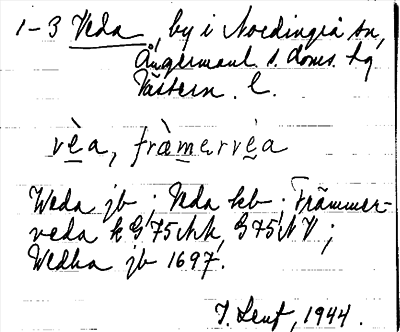 1-3 Veda, by i Nordingrå sn,
Ångermanl. s. doms. hg
Västern. l.
vèa, främervèa
Weda jb; Veda kb; Främmer-
veda k G 75 NV;
Wedha jb 1697.
1944.